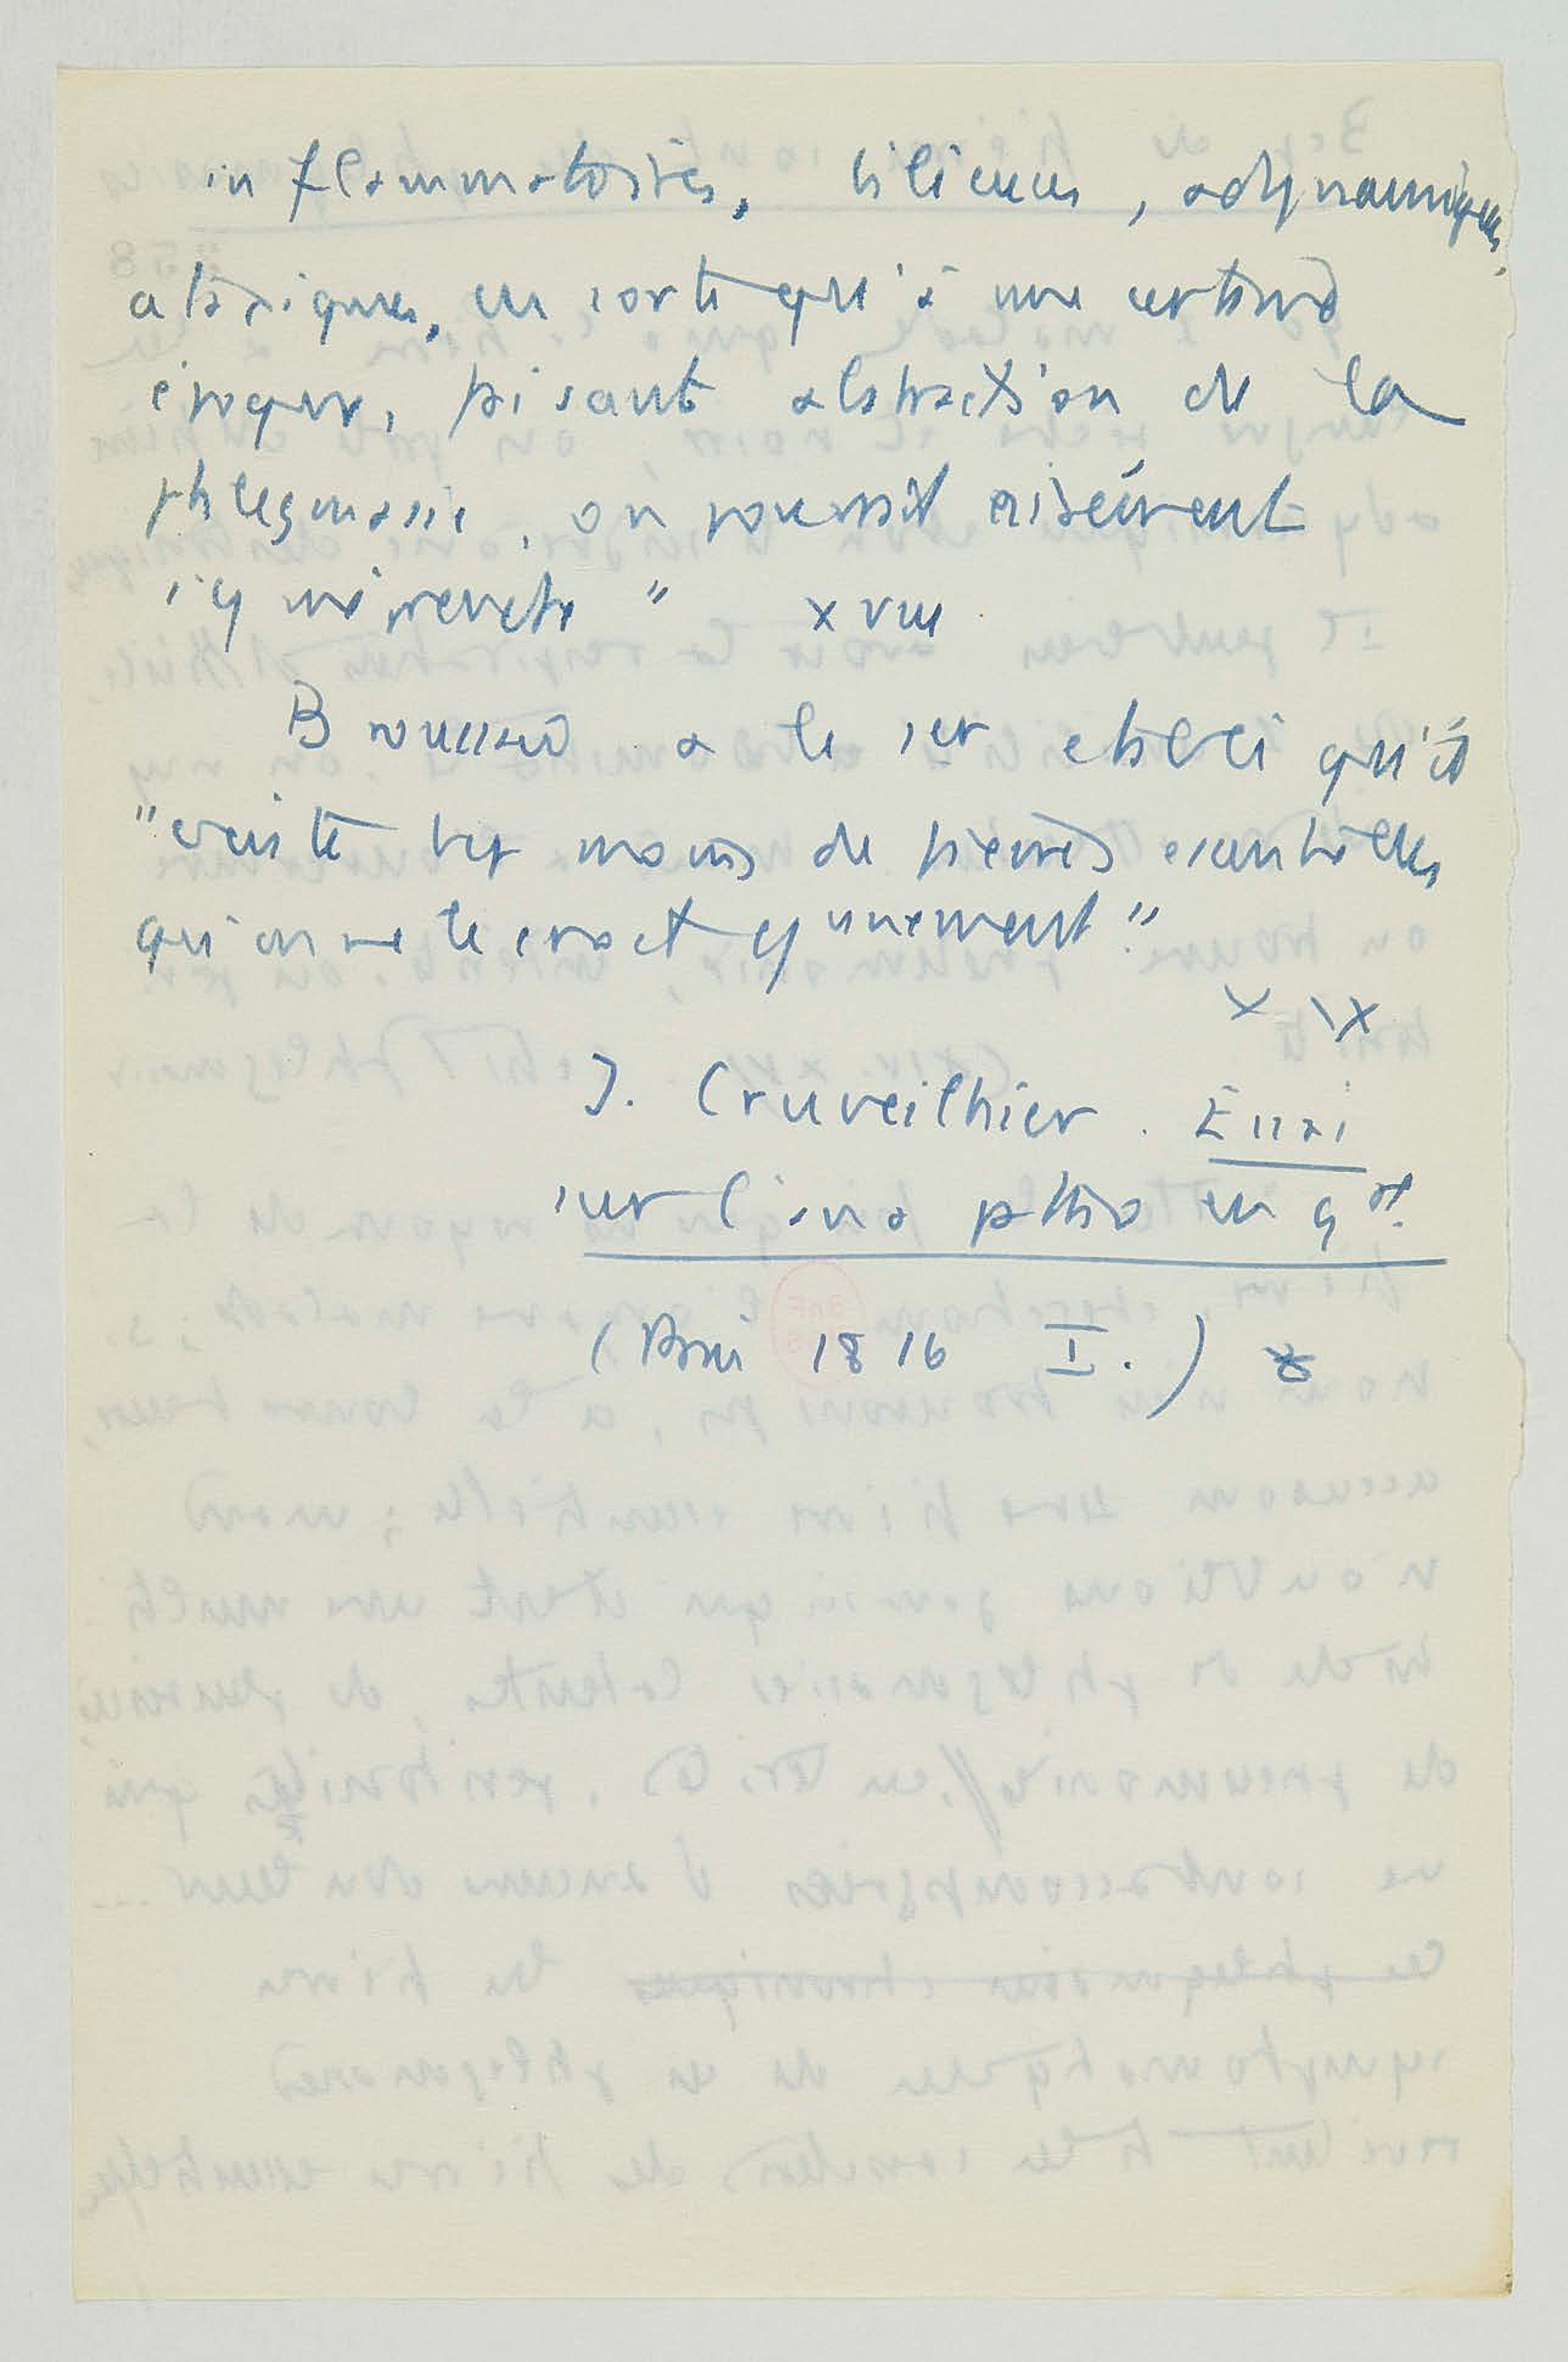 inflammatoires, bilieuses, adynamiques,
ataxiques, en sorte qu'à une certaine
époque, faisant abstraction de la
phlegmasie, on pourrait aisément
s'y méprendre" XVIII
Broussais a le 1er établi qu'il
"existe bcp moins de fièvres essentielles
qu'on ne le croit communément"
XIX
J. Cruveilhier. Essai
sur l'ana patho en gal.
(Paris 1816 I.)